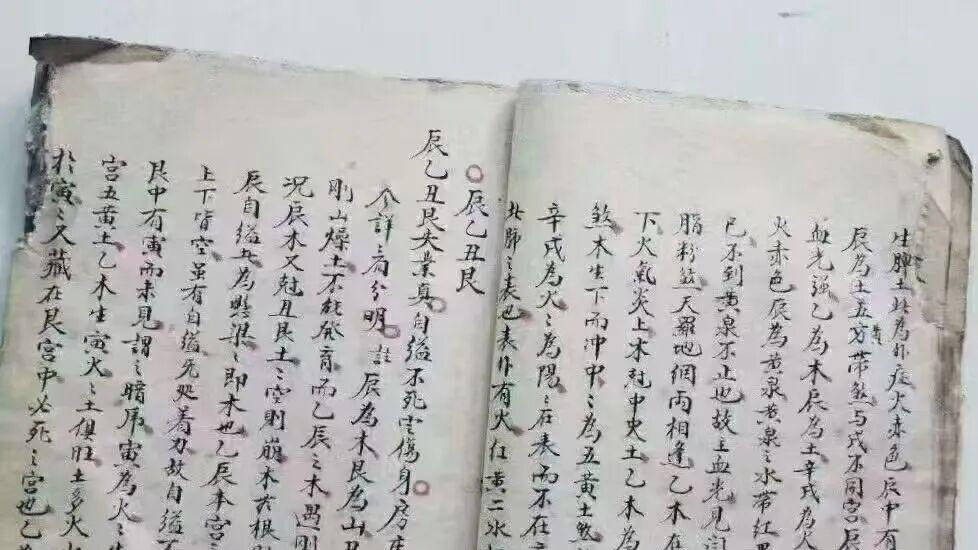 生脾土此為外症火赤色辰中有
辰為土五方帶煞与戌不同宮辰
血光強乙為木辰為土辛戌為火
火赤色辰為黄泉黄泉之水帶紅黑
已不到黄泉不止也故主血光見
脂粉盆天羅地網両相逢乙木在
下火氣炎上木尅中央土乙木為
煞木生下而冲中〻為五黄土煞
辛戌為火〻為陽〻在表而不在
北肺之表也表作有火紅黄二水
辰乙丑艮
辰乙丑艮夫業真自縊不死主傷身房
參詳之看分明註辰為木艮為山丑
剛山燥土不能發育而乙辰之木遇剛
况辰木又尅丑艮土〻空則崩木有根
辰自縊丑為懸梁〻即木也乙辰本宮
上下皆空虽有自縊死処着力故自縊不
艮中有寅而未見謂之暗虎寅為火之生
宮五黄土乙木生寅火〻土俱旺土多火
於寅〻又藏在艮宮中必死之宮也乙